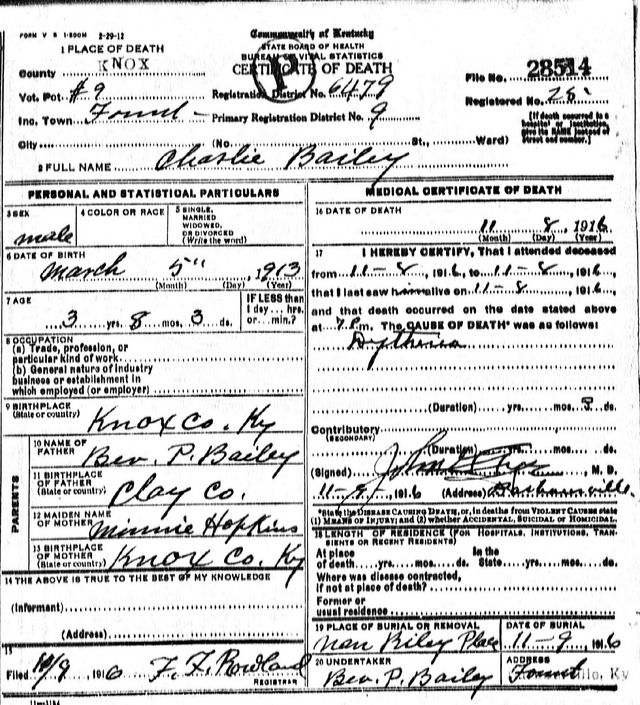 FORM V S 1-300M 2-29-12
1 PLACE OF DEATH
County KNOX
Vot. Pct. #9
Inc. Town Fount
City (No. St., Ward)
Commonwealth of Kentucky
STATE BOARD OF HEALTH
BUREAU OF VITAL STATISTICS
CERTIFICATE OF DEATH
Registration District No. 6479
Primary Registration District No. 9
File No. 28514
Registered No. 28
[If death occurred in a
hospital or institution,
give its NAME instead of
street and number.]
2 FULL NAME Charlie Bailey
PERSONAL AND STATISTICAL PARTICULARS
3 SEX
male
4 COLOR OR RACE
5 SINGLE,
MARRIED
WIDOWED,
OR DIVORCED
(Write the word)
6 DATE OF BIRTH
March 5", 1913
(Month) (Day) (Year)
7 AGE
3 yrs. 8 mos. 3 ds.
IF LESS than
1 day... hrs.
or... min.?
8 OCCUPATION
(a) Trade, profession, or
particular kind of work
(b) General nature of industry
business or establishment in
which employed (or employer)
9 BIRTHPLACE
(State or country) Knox Co. Ky
PARENTS
10 NAME OF
FATHER Bev. P. Bailey
11 BIRTHPLACE
OF FATHER
(State or country) Clay Co.
12 MAIDEN NAME
OF MOTHER Minnie Hopkins
13 BIRTHPLACE
OF MOTHER
(State or country) Knox Co. Ky
14 THE ABOVE IS TRUE TO THE BEST OF MY KNOWLEDGE
(Informant)
(Address)
15
Filed 10/9 1916 F. F. Rowland
REGISTRAR
MEDICAL CERTIFICATE OF DEATH
16 DATE OF DEATH
11 8, 1916
(Month) (Day) (Year)
17 I HEREBY CERTIFY, That I attended deceased
from 11-8, 1916, to 11-8, 1916,
that I last saw him alive on 11-8, 1916,
and that death occurred on the date stated above
at 7 P.m. The CAUSE OF DEATH* was as follows:
(Duration) yrs. mos. 3 ds.
Contributory
(SECONDARY)
(Duration) yrs. mos. ds.
(Signed) M. D.
11-9, 1916 (Address) Barbourville
*State the DISEASE CAUSING DEATH, or, in deaths from VIOLENT CAUSES state
(1) MEANS OF INJURY; and (2) whether ACCIDENTAL, SUICIDAL or HOMICIDAL.
18 LENGTH OF RESIDENCE (FOR HOSPITALS, INSTITUTIONS, TRAN-
SIENTS OR RECENT RESIDENTS)
At place In the
of death yrs. mos. ds. State yrs. mos. ds.
Where was disease contracted,
if not at place of death?
Former or
usual residence
19 PLACE OF BURIAL OR REMOVAL
Place
DATE OF BURIAL
11-9, 1916
20 UNDERTAKER
Bev. P. Bailey
ADDRESS
Fount Ky